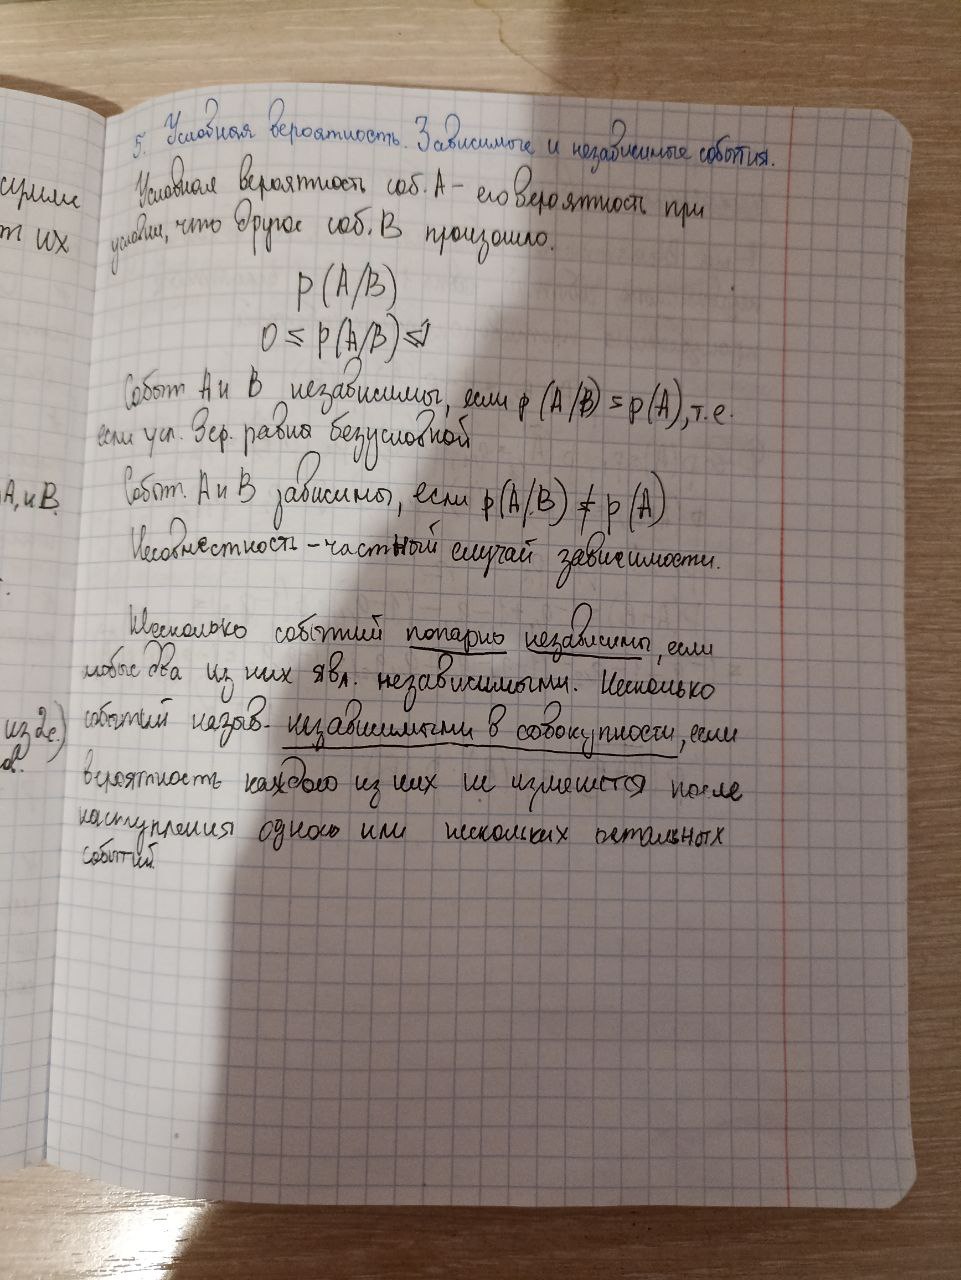 5. Условная вероятность. Зависимые и независимые события.
Условная вероятность соб. А – его вероятность при
условии, что другое соб. В произошло.
p(A/B)
0 ≤ p(A/B) ≤ 1
Событ А и В независимы, если p(A/B) = p(A), т.е.
если усл. вер. равна безусловной
Событ. А и В зависимы, если p(A/B) ≠ p(A)
Несовместность – частный случай зависимости.
Несколько событий попарно независимы, если
любые два из них явл. независимыми. Несколько
событий назыв. независимыми в совокупности, если
вероятность каждого из них не изменится после
наступления одного или нескольких остальных
событий.
т их
А, и В.
из 2е.)